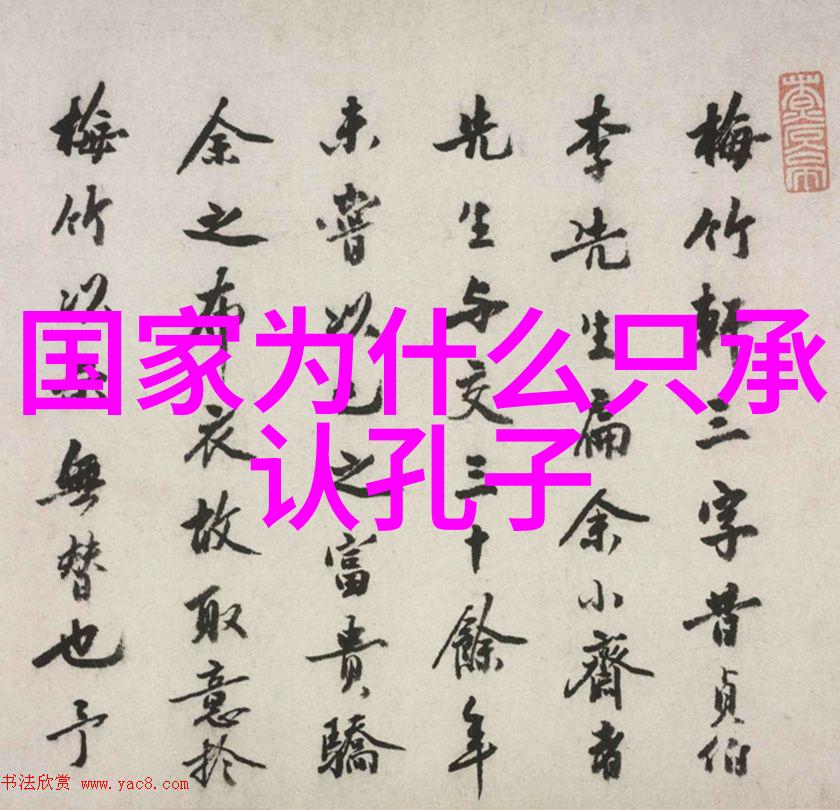 国家为什么只承
认孔子
梅竹軒三字昔貞伯
李先生扁余小齋者
先生与交三十餘年
未嘗以己之富貴驕
余之布衣故取意於
梅竹無替也予
书法欣赏 www.yac8.com